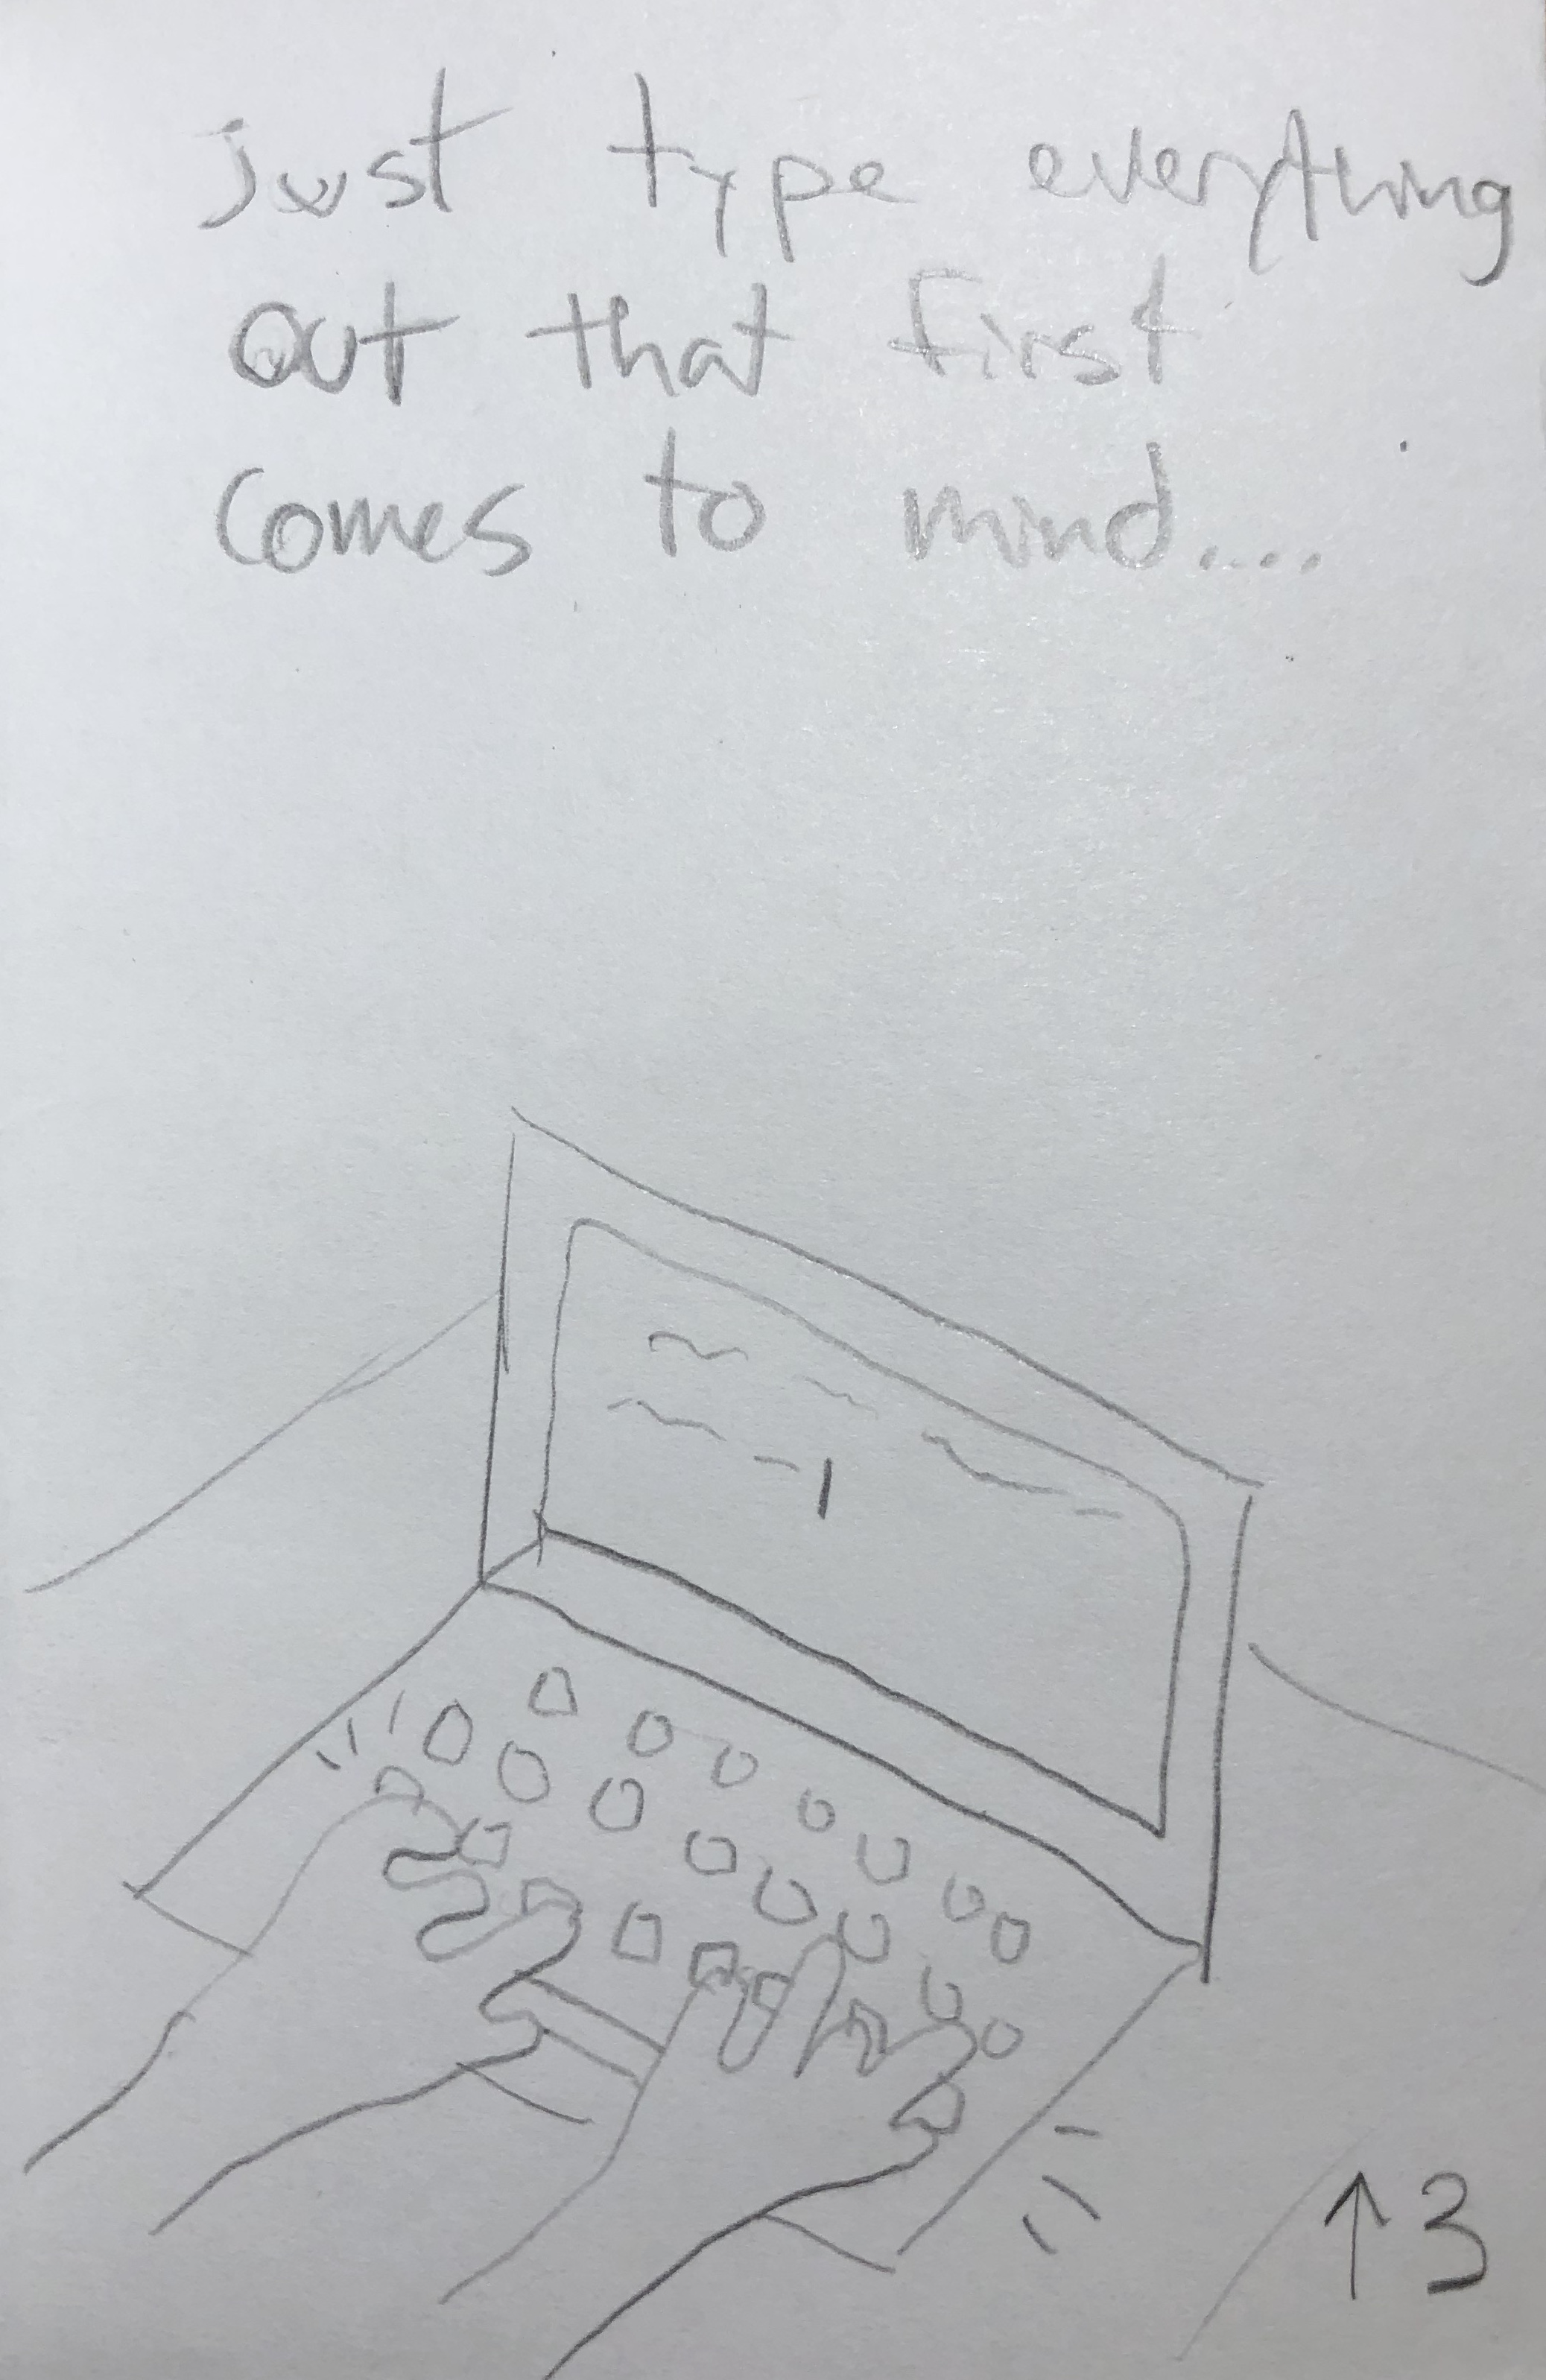 just type everything
out that first
comes to mind....
↑3